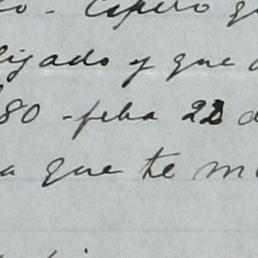 Espero q
ligado y que
80 - feha 22 d
a que te m